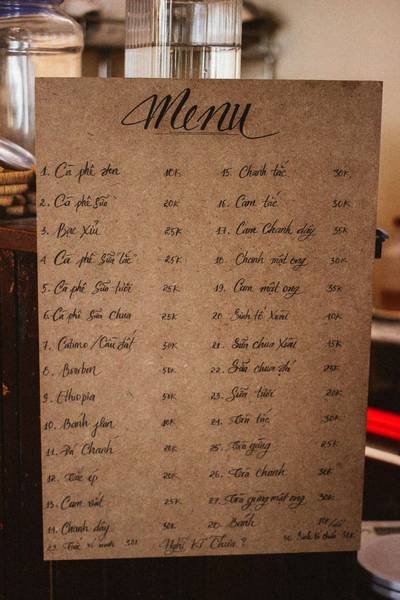 Menu
1. Cà phê đen 10K
2. Cà phê sữa 20K
3. Bạc Xỉu 25K
4. Cà phê sữa tắc 25K
5. Cà phê sữa tươi 25K
6. Cà phê sữa chua 25K
7. Catimo / Cầu đất 50K
8. Bourbon 50K
9. Ethiopia 50K
10. Bánh flan 10K
11. Đá Chanh 20K
12. Tắc ép 20K
13. Cam vắt 25K
14. Chanh dây 30K
29. Tắc xí muội 30K
15. Chanh tắc 30K
16. Cam tắc 30K
17. Cam Chanh dây 35K
18. Chanh mật ong 30K
19. Cam mật ong 35K
20. Sinh tố Xoài
21. Sữa chua Xoài
22. Sữa chua đá
23. Sữa tươi 20K
24. Trà tắc 30K
25. Trà gừng 25K
26. Trà chanh 30K
27. Trà gừng mật ong 30K
28. Bánh
Nghĩ Kĩ Chưa ?